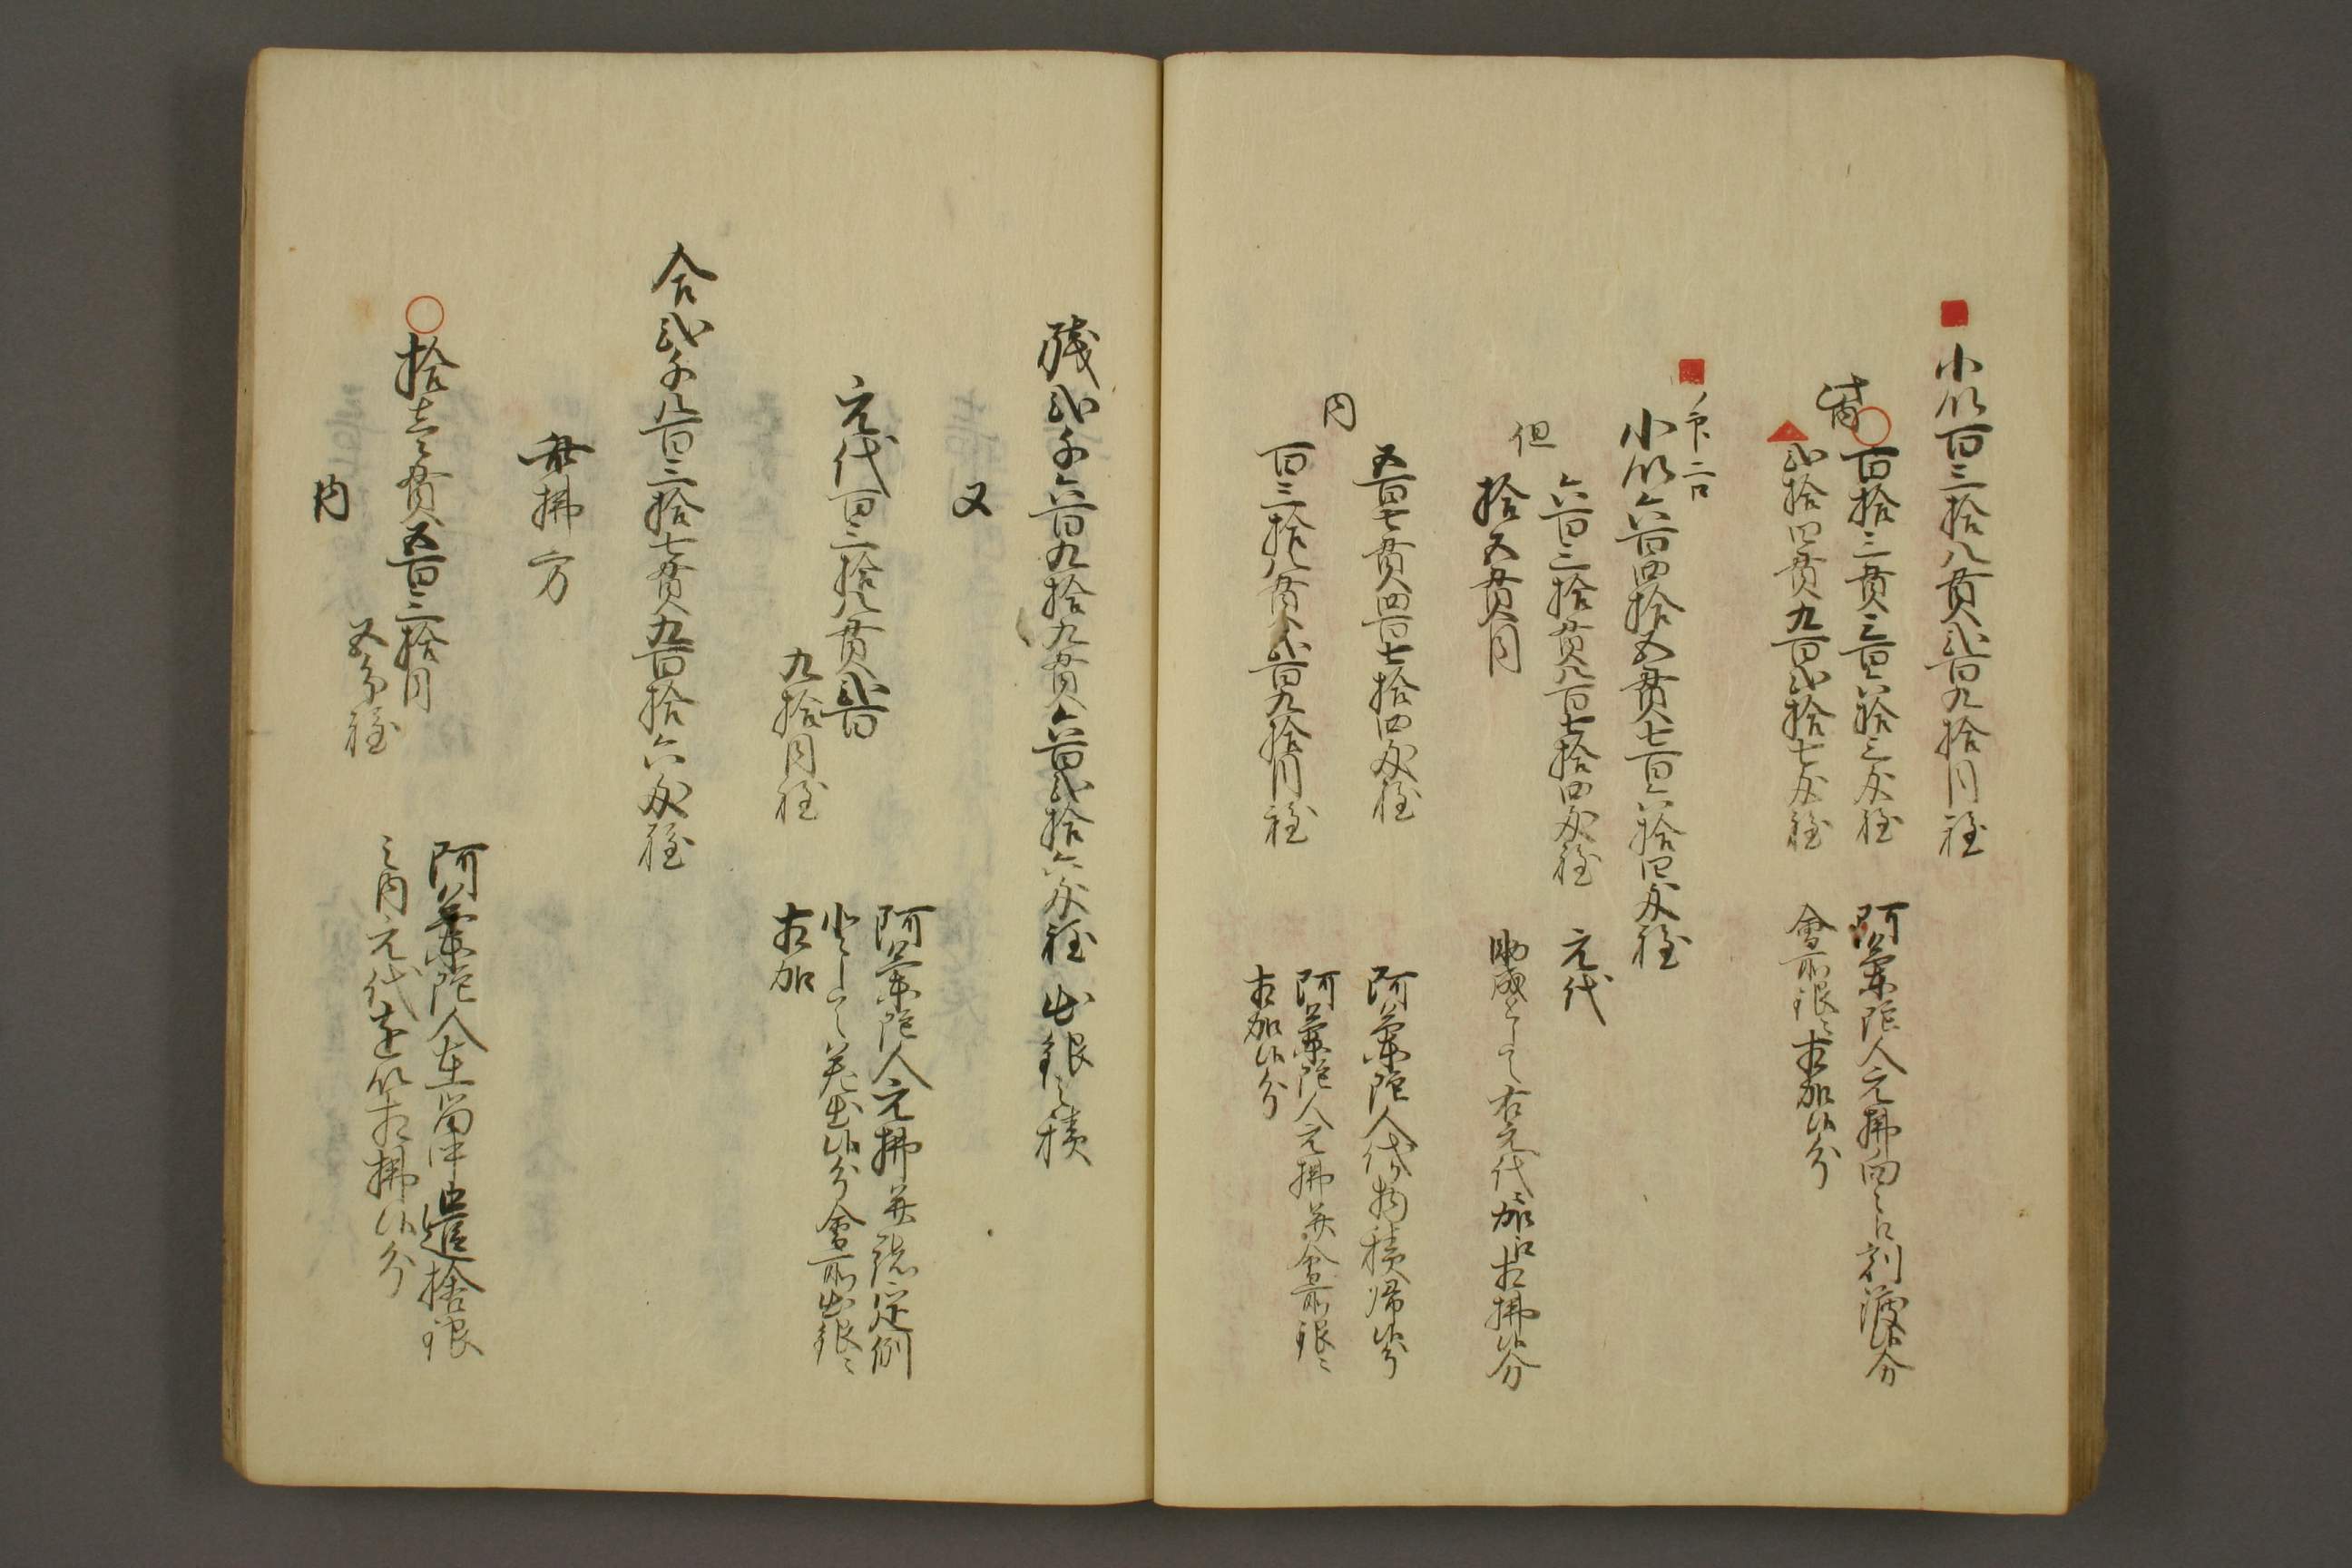 小以百三拾八貫弐百九拾目程
此内
百拾三貫三百六拾三匁程
阿蘭陀人元払内
分
弐拾四貫九百弐拾七匁程
會所銀
加候分
二口
小以六百四拾五貫七百六拾四匁程
但
六百三拾貫八百七拾四匁程
元代
拾五貫目
助成として右元代加
払候分
内
五百七貫四百七拾四匁程
阿蘭陀人代り物積帰候分
百三拾八貫弐百九拾目程
阿蘭陀人元払并會所銀
加候分
残弐千六百九拾九貫六百弐拾六匁程
出銀之積
又
元代百三拾八貫弐百
九拾目程
阿蘭陀人元払并
定例
として差出候分會所出銀
加
合弐千八百三拾七貫九百拾六匁程
払方
拾壱貫五百三拾目
五分程
阿蘭陀人在留中遣捨銀
之内元代を以
払候分
内